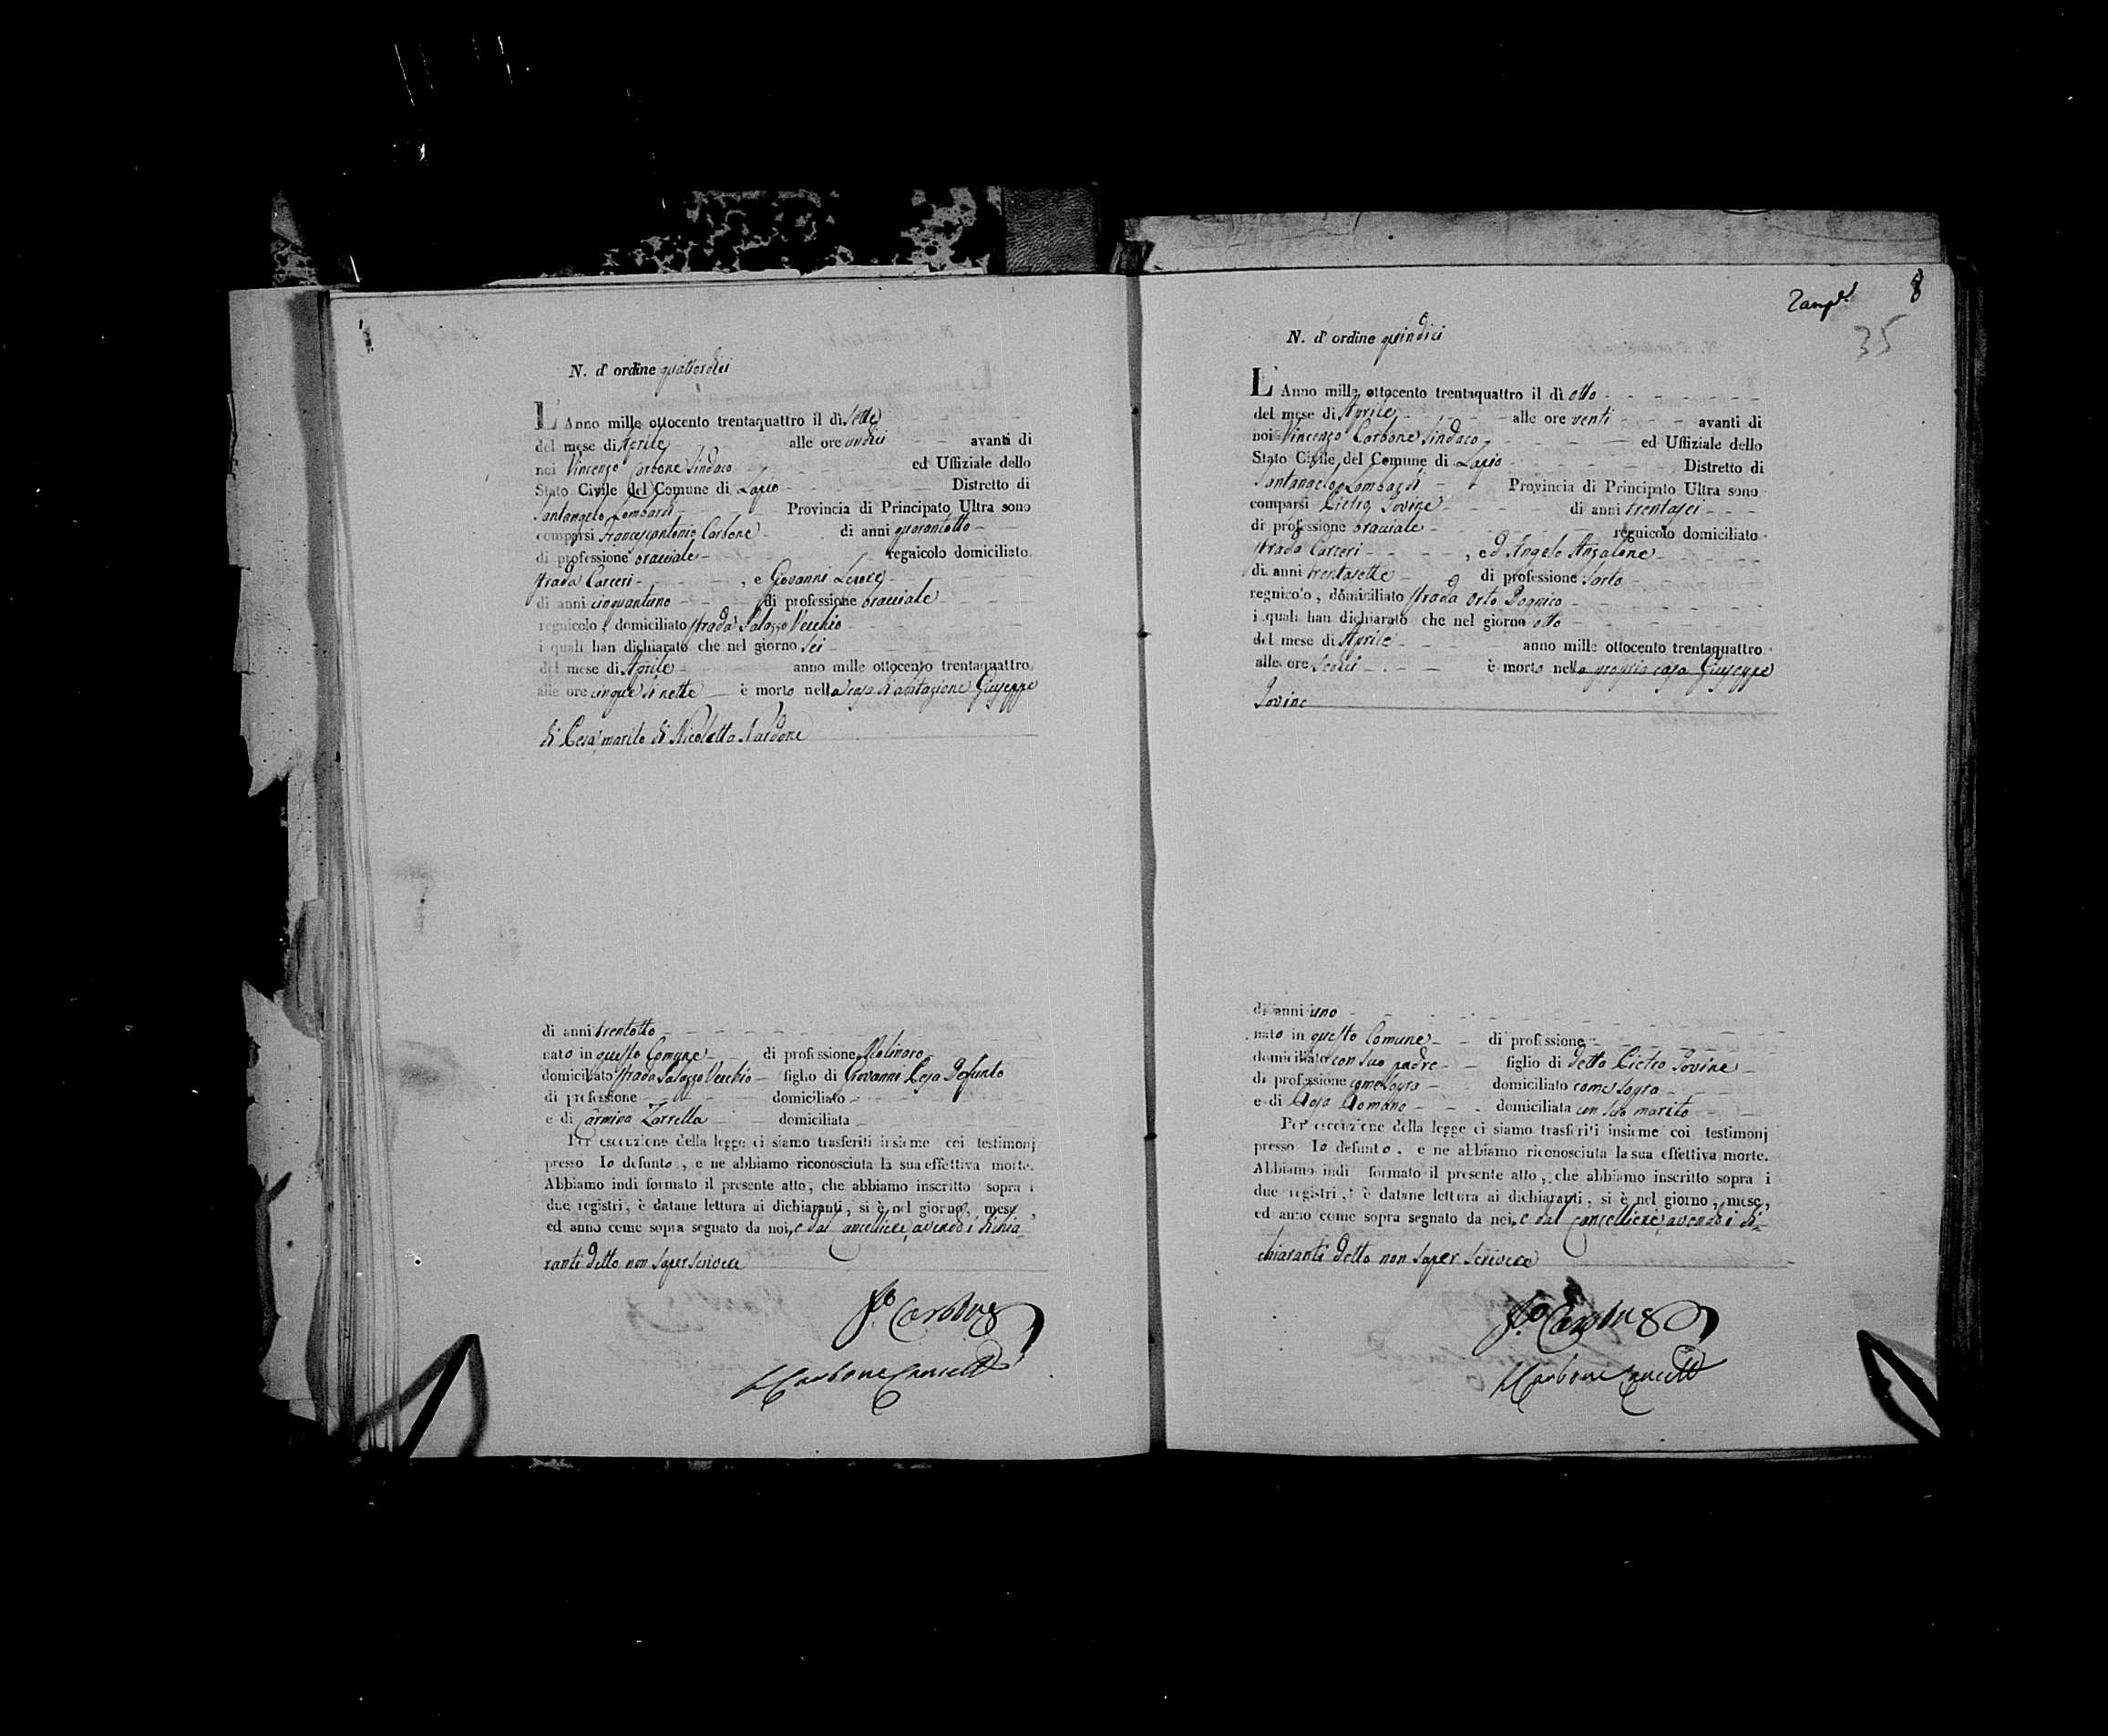 N. d' ordine quattordici
L' Anno mille ottocento trentaquattro il dì sette
del mese di Aprile alle ore undici avanti di
noi Vincenzo Carbone Sindaco ed Uffiziale dello
Stato Civile del Comune di Lapio Distretto di
Santangelo Lombardi Provincia di Principato Ultra sono
comparsi Francescantonio Carbone di anni quarantotto
di professione bracciale regnicolo domiciliato
strada Carceri , e Giovanni
di anni cinquantuno di professione bracciale
regnicolo, domiciliato strada Palazzo Vecchio
i quali han dichiarato che nel giorno sei
del mese di Aprile anno mille ottocento trentaquattro
alle ore cinque di notte è morto nella casa di abitazione Giuseppe
di Cesa marito di Nicoletta Nardone
di anni trentotto
nato in questo Comune di professione Molinaro
domiciliato strada Palazzo Vecchio figlio di Giovanni Cesa Defunto
di professione domiciliato
e di Carmina Zarrella domiciliata
Per esecuzione della legge ci siamo trasferiti insieme coi testimonj
presso lo defunto, e ne abbiamo riconosciuta la sua effettiva morte.
Abbiamo indi formato il presente atto, che abbiamo inscritto sopra i
due registri, è datane lettura ai dichiaranti, si è nel giorno, mese,
ed anno come sopra segnato da noi, e dal Cancelliere, avendo i dichia
ranti detto non saper scrivere
Carbone
Carbone Cancell
8
35
N. d' ordine quindici
L' Anno mille ottocento trentaquattro il dì otto
del mese di Aprile alle ore venti avanti di
noi Vincenzo Carbone Sindaco ed Uffiziale dello
Stato Civile del Comune di Lapio Distretto di
Santangelo Lombardi Provincia di Principato Ultra sono
comparsi Pietro Iovine di anni trentasei
di professione bracciale regnicolo domiciliato
strada Carceri , ed Angelo Anzalone
di anni trentasette di professione Sarto
regnicolo, domiciliato strada Orto
i quali han dichiarato che nel giorno otto
del mese di Aprile anno mille ottocento trentaquattro
alle ore sedici è morto nella propria casa Giuseppe
Iovine
di anni uno
nato in questo Comune di professione
domiciliato con suo padre figlio di detto Pietro Iovine
di professione come sopra domiciliato come sopra
e di Rosa Romano domiciliata con suo marito
Per esecuzione della legge ci siamo trasferiti insieme coi testimonj
presso lo defunto, e ne abbiamo riconosciuta la sua effettiva morte.
Abbiamo indi formato il presente atto, che abbiamo inscritto sopra i
due registri, è datane lettura ai dichiaranti, si è nel giorno, mese,
ed anno come sopra segnato da noi, e dal Cancelliere, avendo i di-
chiaranti detto non saper scrivere
Carbone
Carbone Cancell